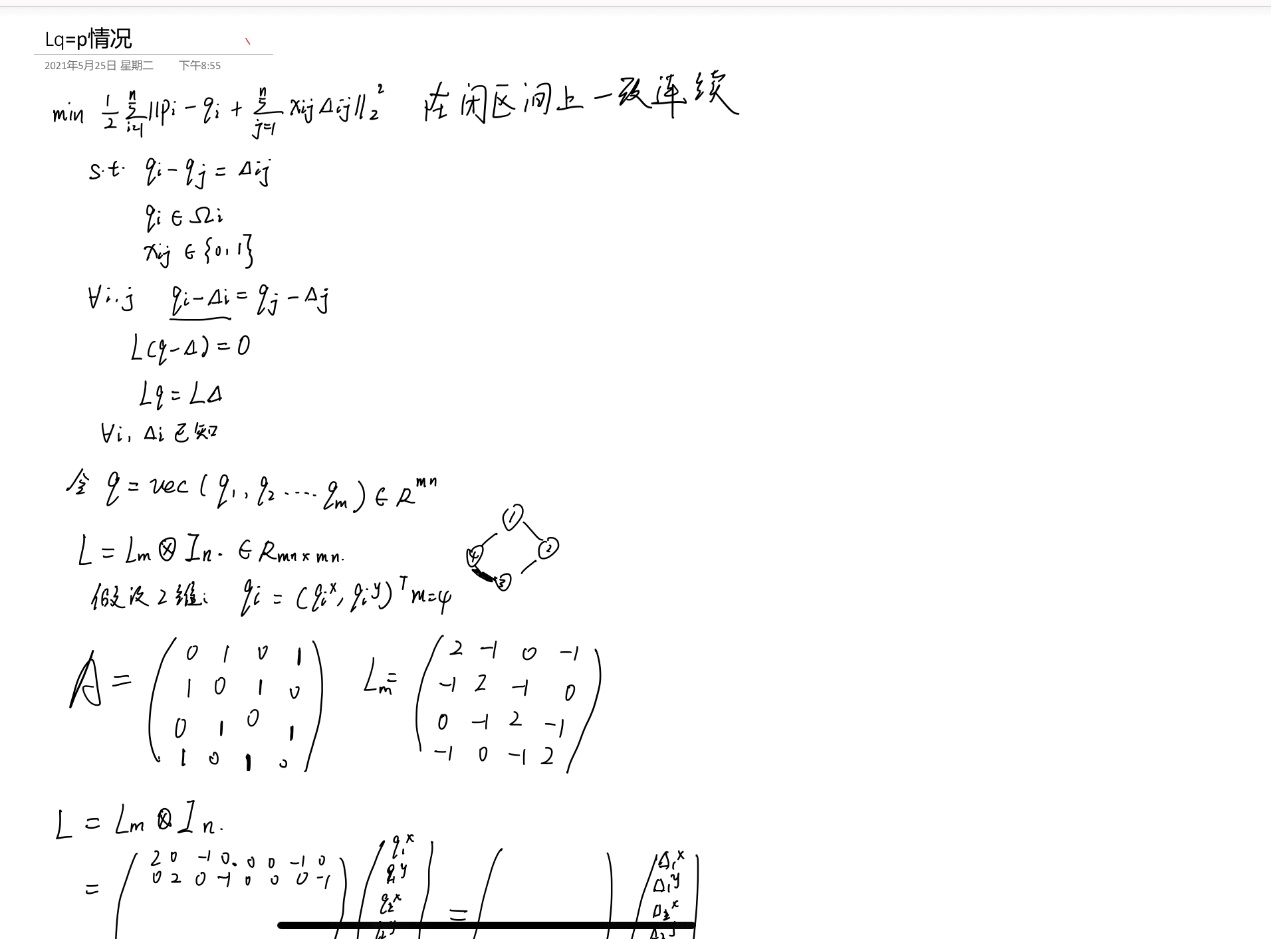 Lq=p情况
2021年5月25日 星期二 下午8:55
min 1/2 Σ_{i=1}^{n} ||pi - qi + Σ_{j=1}^{n} xij Δij||_2^2 在闭区间上一致连续
s.t. qi - qj = Δij
qi ∈ Ωi
xij ∈ {0,1}
∀i.j qi - Δi = qj - Δj
L(q-Δ) = 0
Lq = LΔ
∀i, Δi 已知
令 q = vec(q1, q2 .... qm) ∈ R^{mn}
L = Lm ⊗ In. ∈ R_{mn×mn}.
1
4 2
3
假设2维: qi = (qi^x, qi^y)^T m=4
A = Lm =
0 1 0 1 2 -1 0 -1
1 0 1 0 -1 2 -1 0
0 1 0 1 0 -1 2 -1
1 0 1 0 -1 0 -1 2
L = Lm ⊗ In.
2 0 -1 0. 0 0 -1 0 q1^x Δ1^x
0 2 0 -1 0 0 0 -1 q1^y Δ1^y
= q2^x = Δ2^x